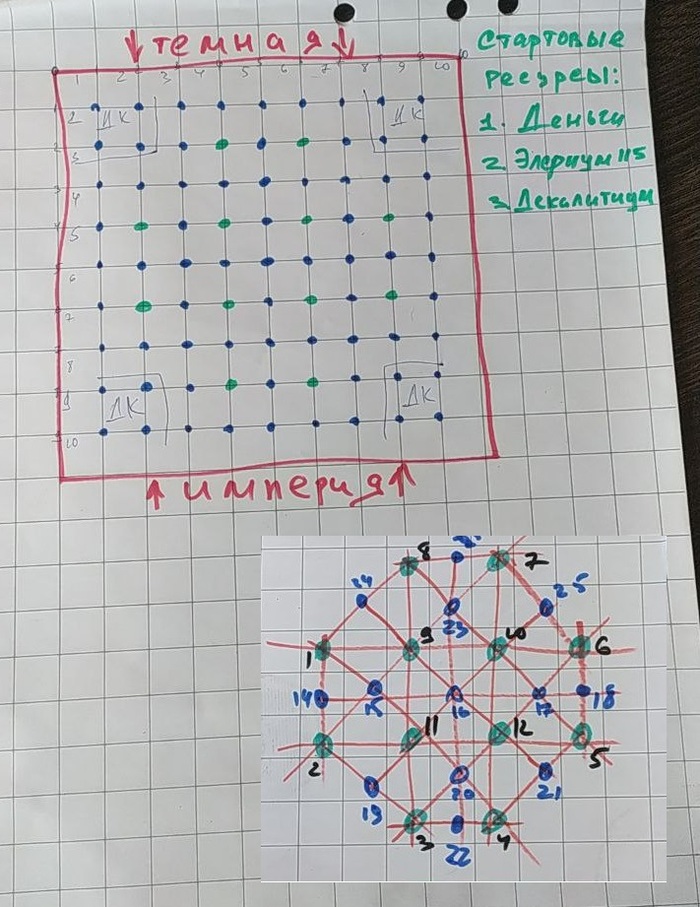 ↓темная↓
1 2 3 4 5 6 7 8 9 10
2
3
4
5
6
7
8
9
10
ДК
ДК
ДК
ДК
↑империя↑
Стартовые
ресурсы:
1. Деньги
2. Элериум 115
3. Декалитиум
8
7
24
25
23
1
9
10
6
14
15
16
17
18
2
11
12
5
19
20
21
3
22
4